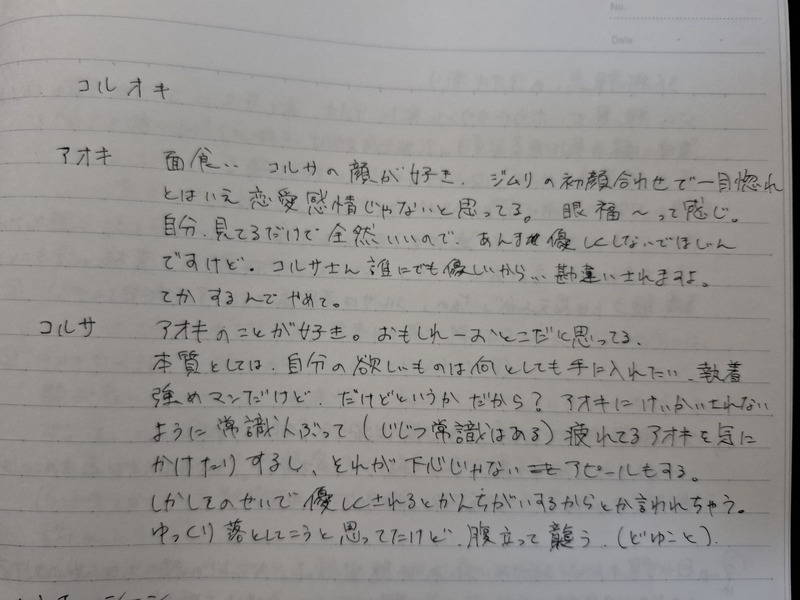 No.
Date
コルオキ
アオキ 面食.. コルサの顔が好き、ジムリの初顔合わせで一目惚れ
とはいえ恋愛感情じゃないと思ってる。眼福〜って感じ。
自分、見てるだけで全然いいので、あんま優しくしないでほしいん
ですけど。コルサさん誰にでも優しいから... 勘違いされますよ。
てかするんでやめて。
コルサ アオキのことが好き。おもしれーおとこだと思ってる、
本質としては、自分の欲しいものは何としても手に入れたい、執着
強めマンだけど、だけどというかだから？アオキにけいかいされない
ように常識人ぶって（じじつ常識はある）疲れてるアオキを気に
かけたりするし、それが下心じゃない アピールもする。
しかしそのせいで優しくされるとかんちがいするからとか言われちゃう。
ゆっくり落としてこうと思ってたけど、腹立って襲う、（どゆこと）.